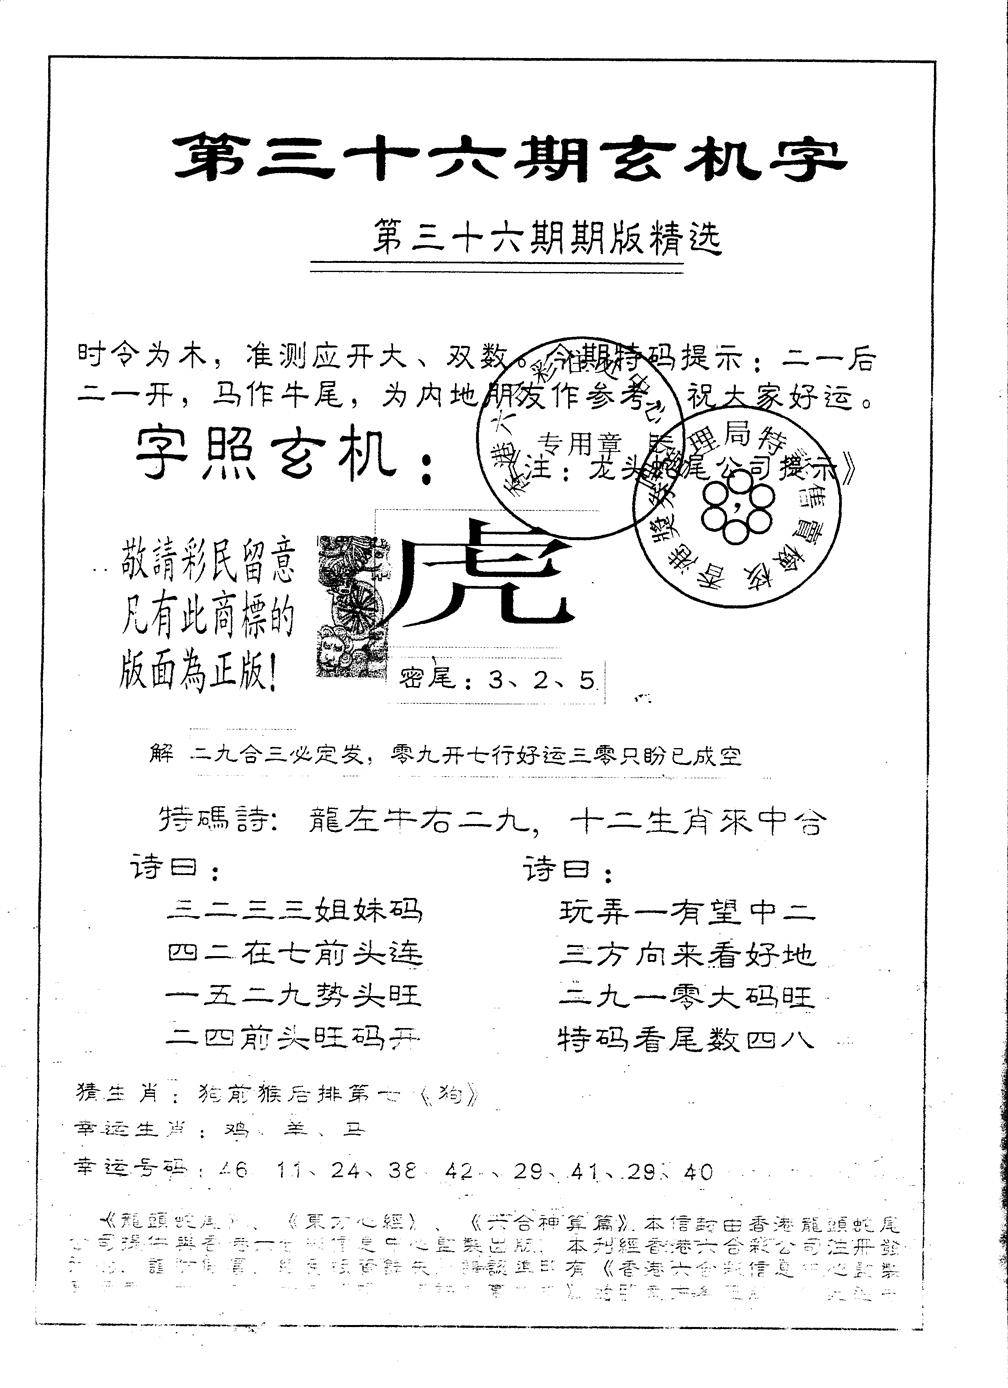 第三十六期玄机字
第三十六期期版精选
时令为木，准测应开大、双数。今期特码提示：二一后
二一开，马作牛尾，为内地朋友作参考，祝大家好运。
字照玄机：
注：龙头蛇尾公司提示》
专用章
香港六合彩信息中心
香港獎券管理局特許售賣檢核
敬請彩民留意
凡有此商標的
版面為正版！
虎
密尾：3、2、5
解 二九合三必定发，零九开七行好运三零只盼已成空
特碼詩：龍左牛右二九，十二生肖來中合
诗曰：
三二三三姐妹码
四二在七前头连
一五二九势头旺
二四前头旺码开
诗曰：
玩弄一有望中二
三方向来看好地
二九一零大码旺
特码看尾数四八
猜生肖：狗前猴后排第七《狗》
幸运生肖：鸡、羊、马
幸运号码：46 11、24、38 42、29、41、29、40
《龍頭蛇尾》、《東方心經》、《六合神算篇》本信封由香港龍頭蛇尾
公司提供與香港六合彩信息中心監製出版，本刊經香港六合彩公司注册發
有《香港六合彩信息中心監製